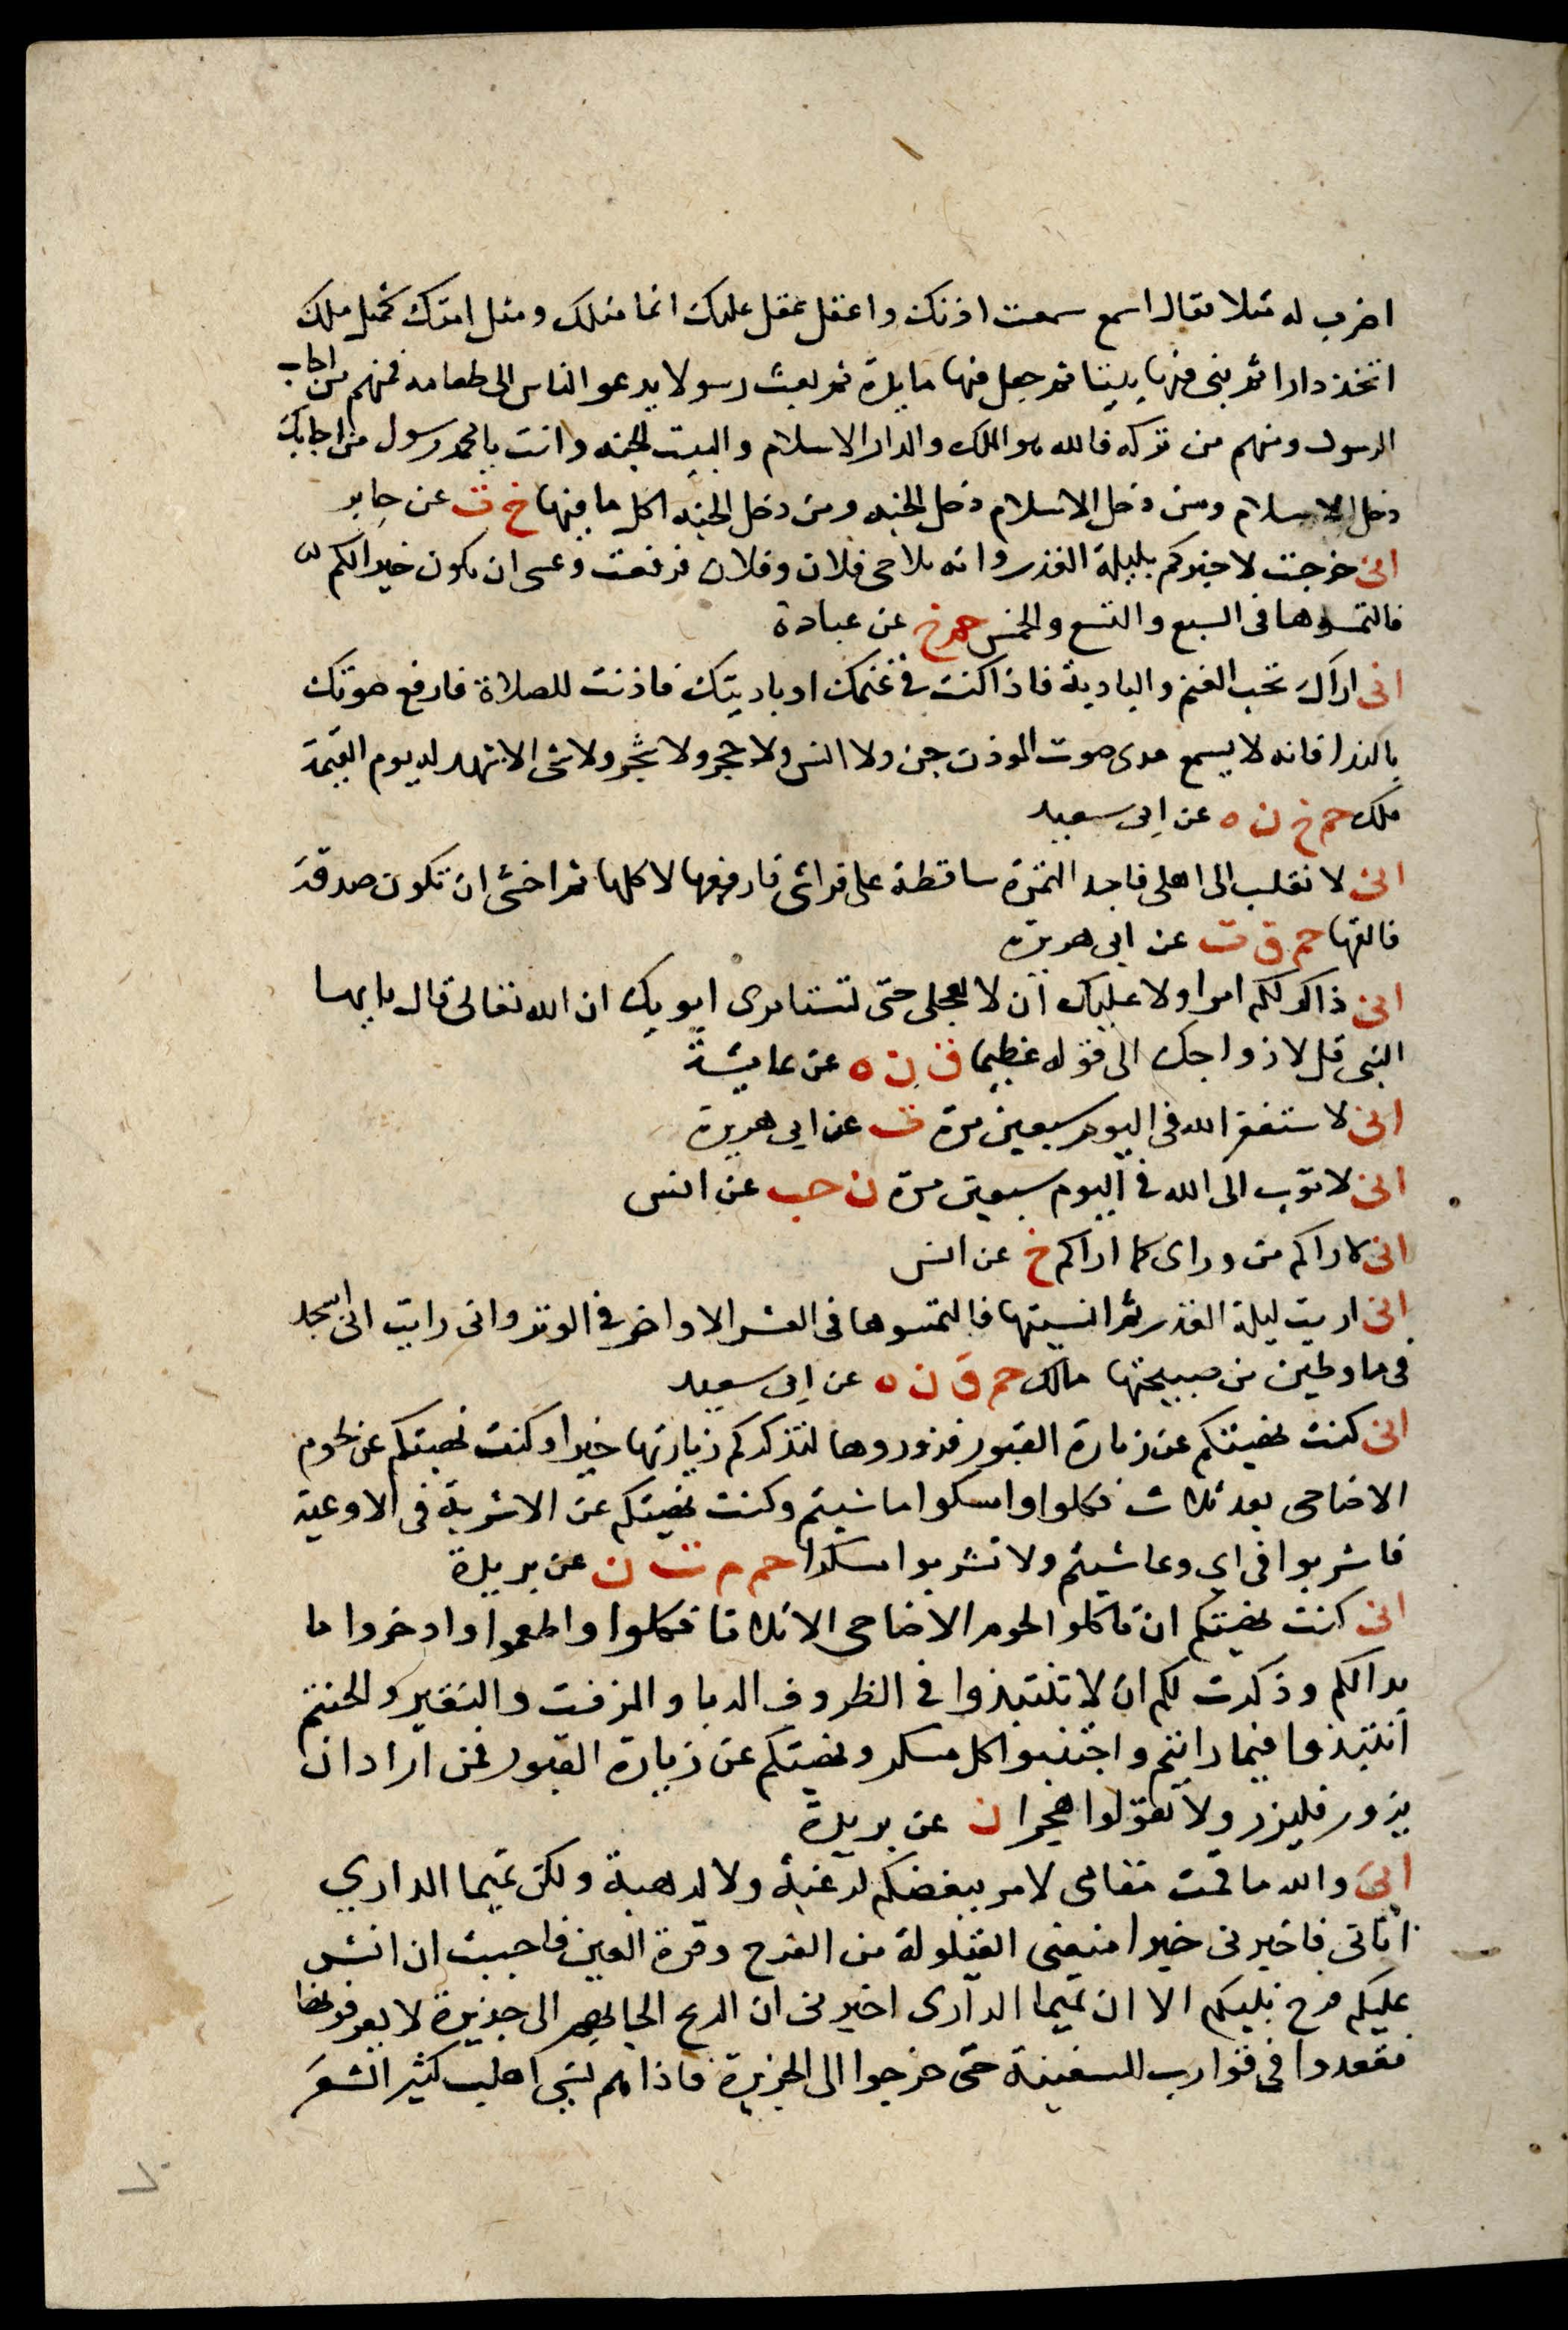 اضرب له مثلا فقال اسمع سمعت اذنك واعقل عقل عليك انما مثلك ومثل امتك كمثل ملك
اتخذ دارا ثم بنى فيها بيتا ثم جعل فيها مايدة ثم بعث رسولا يدعو الناس الى طعامه فمنهم من اجاب
الرسول ومنهم من تركه فالله هو الملك والدار الاسلام والبيت الجنه وانت يا محمد رسول من اجابك
دخل الاسلام ومن دخل الاسلام دخل الجنه ومن دخل الجنه اكل ما فيها خ ت عن جابر
انى خرجت لاخبركم بليلة القدر وانه تلاحى فلان وفلان فرفعت وعسى ان يكون خيرا لكم
فالتمسوها فى السبع والتسع والخمس حم خ عن عبادة
انى اراك تحب الغنم والبادية فاذا كنت فى غنمك او باديتك فاذنت للصلاة فارفع صوتك
بالندا فانه لا يسمع مدى صوت الموذن جن ولا انس ولا حجر ولا شجر ولا شى الا شهد له يوم القيمة
ملك حم خ ن ه عن ابى سعيد
انى لا نقلب الى اهلى فاجد التمرة ساقطة على فراشى فارفعها لاكلها ثم اخشى ان تكون صدقة
فالقها حم ق ت عن ابى هريرة
انى ذاكر لكم امرا ولا عليك ان لا تعجلى حتى تستامرى ابويك ان الله تعالى قال يا ايها
النبى قل لازواجك الى قوله عظيما ق ن ه عن عايشة
انى لاستغفر الله فى اليوم سبعين مرة ت عن ابى هريرة
انى لاتوب الى الله فى اليوم سبعين مرة ن حب عن انس
انى لاراكم من وراى كما اراكم خ عن انس
انى اريت ليلة القدر ثم انسيتها فالتمسوها فى العشر الاواخر فى الوتر وانى رايت انى اسجد
فى ما وطين من صبيحتها مالك حم ق ن ه عن ابى سعيد
انى كنت نهيتكم عن زيارة القبور فزوروها لتذكركم زيارتها خيرا وكنت نهيتكم عن لحوم
الاضاحى بعد ثلاث فكلوا وامسكوا ما شيتم وكنت نهيتكم عن الاشربة فى الاوعية
فاشربوا فى اى وعا شيتم ولا تشربوا مسكرا حم م ت ن عن بريدة
انى كنت نهيتكم ان تاكلوا لحوم الاضاحى الا ثلاثا فكلوا واطعموا وادخروا ما
بدا لكم وذكرت لكم ان لا تنتبذوا فى الظروف الدبا والمزفت والنقير والحنتم
انتبذوا فيما رايتم واجتنبوا كل مسكر ونهيتكم عن زيارة القبور فمن اراد ان
يزور فليزر ولا تقولوا هجرا ن عن بريدة
انى والله ما قمت مقامى لامر ينفعكم لرغبة ولا لرهبة ولكن تميما الدارى
اتانى فاخبرنى خبرا منعنى القيلولة من الفرح وقرة العين فاحببت ان انشر
عليكم فرح نبيكم الا ان تميما الدارى اخبرنى ان الريح الجاتهم الى جزيرة لا يعرفونها
فقعدوا فى قوارب السفينة حتى خرجوا الى الجزيرة فاذا هم بشى اهلب كثير الشعر